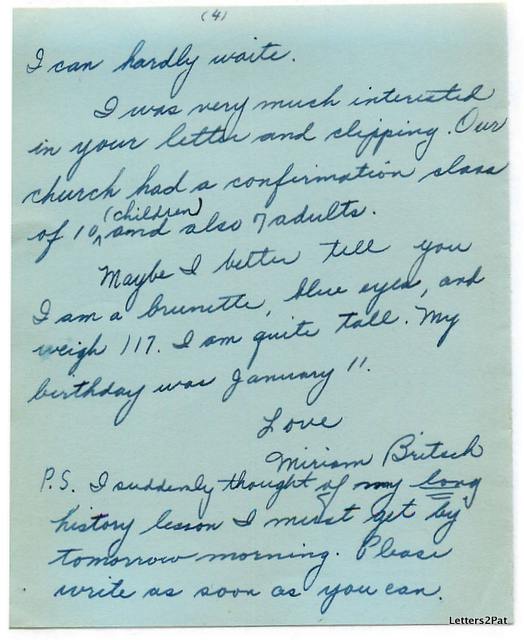 (4)
I can hardly waite.
I was very much interested
in your letter and clipping. Our
church had a confirmation class
of 10 (children) and also 7 adults.
Maybe I better tell you
I am a brunette, blue eyes, and
weigh 117. I am quite tall. My
birthday was January 11.
Love
Miriam Britsch
P.S. I suddenly thought of my long
history lesson I must get by
tomorrow morning. Please
write as soon as you can.
Letters2Pat